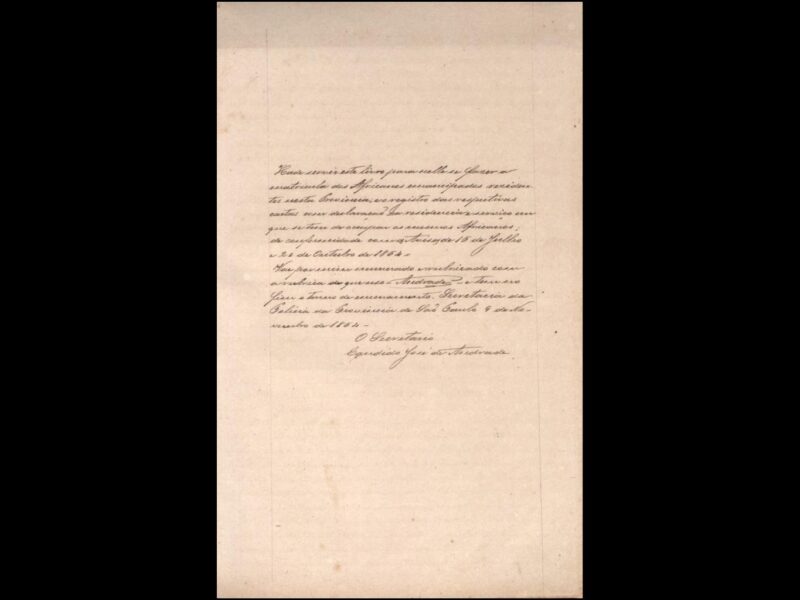 Hade servir este livro para nelle se fazer a
matricula dos Africanos emancipados residen-
tes nesta Provincia, e o registro das respectivas
cartas com declaração da residencia e serviço em
que se tem de occupar os mesmos Africanos;
de conformidade com os Avisos de 15 de Julho
e 24 de Outubro de 1864.
Vae por mim numerado e rubricado com
a rubrica de que uso - Andrade - e tem no
fim o termo de encerramento. Secretaria da
Policia da Provincia de São Paulo 9 de No-
vembro de 1864 -
O Secretario
Candido José de Andrade.